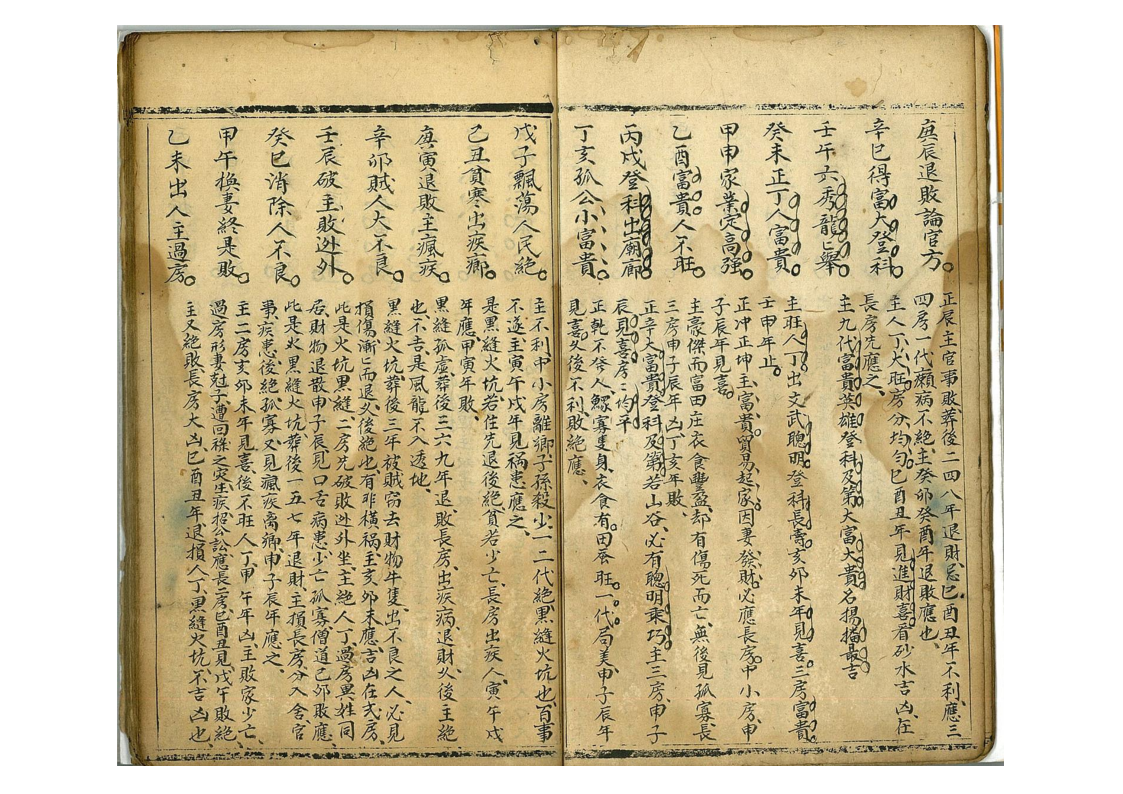 庚辰退敗論官方。
正辰主官事敗葬後二四八年退財忌巳酉丑年不利應三
四房一代癩病不絶主癸卯癸酉年退敗應也
辛巳得富大登科。
主人丁大旺房分均勻巳酉丑年見進財喜看砂水吉凶在
長房先應之、
壬午六秀龍上舉
主九代富貴英雄登科及第大富大貴名揚播最吉
癸未正丁人富貴
主旺人丁出文武聰明登科長壽亥卯未年見喜三房富貴
壬申年止。
甲申家業定高強
正冲正坤主富貴貿易起家因妻發財必應長房中小房申
子辰年見喜
乙酉富貴人不旺
主豪傑而富田庄衣食豐盈却有傷死而亡無後見孤寡長
三房申子辰年凶丁亥年敗
丙戌登科出廟廊
正辛大富貴登科及第若山谷必有聰明乘巧主三房申子
辰見喜房〻均平
丁亥孤公小富貴。
正乾不發人鰥寡隻身衣食有田蚕旺一代局美申子辰年
見喜久後不利敗絶應、
戊子飄蕩人民絶。
主不利中小房離鄉子孫殺少一二代絶黑縫火坑也百事
不遂主寅午戌年見禍患應之、
己丑貧寒出疾癆。
是黑縫火坑若住先退後絶貧若少亡長房出疾人寅午戌
年應甲寅年敗
庚寅退敗主瘋疾。
黑縫孤虛葬後三六九年退敗長房出疾病退財久後主絶
也不吉是風龍不入透地、
辛卯賊人大不良
黑縫火坑葬後三年被賊竊去財物牛隻出不良之人必見
損傷漸〻而退久後絶也有非橫禍主亥卯未應吉凶在弍房
壬辰破主敗迯外。
此是火坑黑縫二房先破敗迯外坐主絶人丁過房異姓同
居財物退散申子辰見口舌病患少亡孤寡僧道己卯敗應
癸巳消除人不良。
此是火黑縫火坑葬後一五七年退財主損長房分入舍官
事疾患後絶孤寡又見瘋疾离鄉申子辰年應之
甲午換妻終是敗。
主二房亥卯未年見喜後不旺人丁甲午年凶主敗家少亡
過房形妻尅子遭回祿之灾生疾招公訟應長二房巳酉丑見戊午敗絶
乙未出人主過房。
主又絶敗長房大凶巳酉丑年退損人丁黑縫火坑不吉凶也